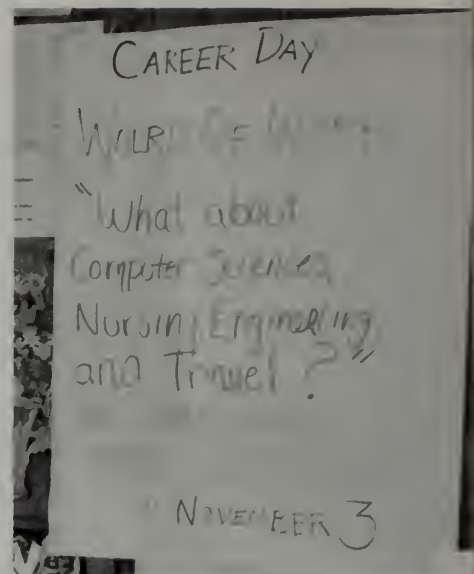 CAREER DAY
WORLD OF
"What about
Computer Sciences,
Nursing, Engineering
and Travel?"
NOVEMBER 3